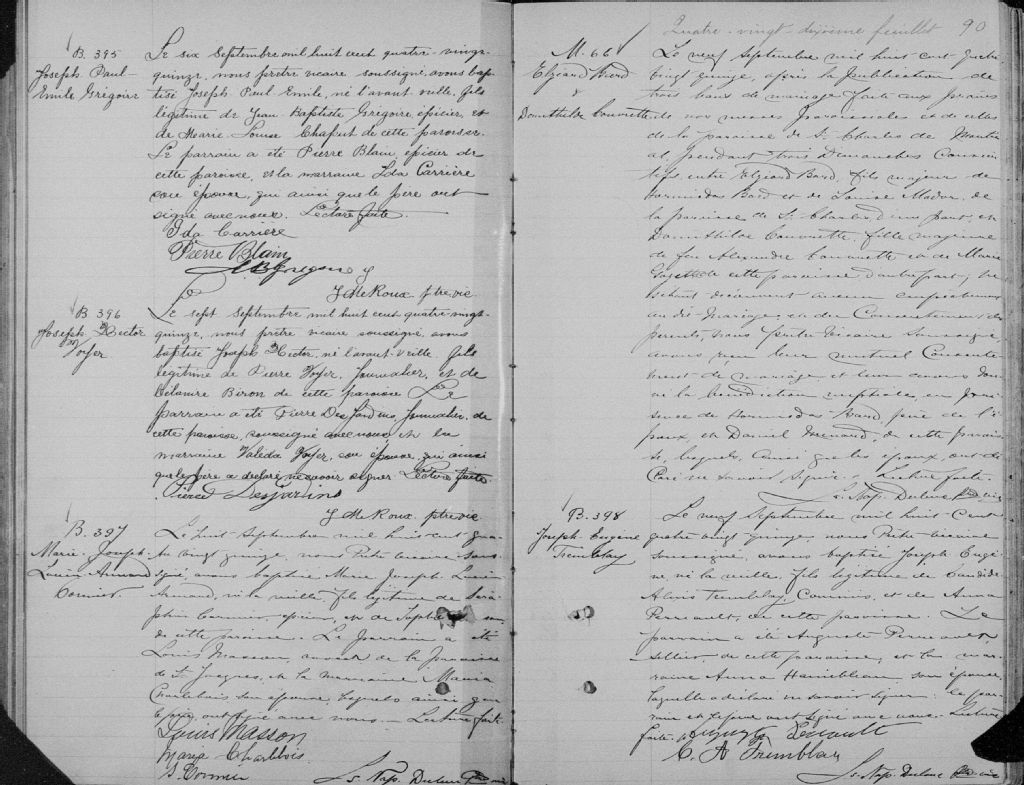 B. 395
Joseph Paul-
Emile Grégoire
Le six Septembre mil huit cent quatre-vingt-
quinze, nous prêtre vicaire soussigné, avons bap-
tisé Joseph Paul Emile, né l'avant veille, fils
légitime de Jean Baptiste Grégoire épicier, et
de Marie Louise Chaput de cette paroisse.
Le parrain a été Pierre Blain, épicier de
cette paroisse, et la marraine Ida Carrière
son épouse, qui ainsi que le père ont
signé avec nous. Lecture faite.
Ida Carriere
Pierre Blain
J. M. Roux ptre vic
B 396
Joseph Hector
Voyer
Le sept Septembre mil huit cent quatre-vingt-
quinze, nous prêtre vicaire soussigné, avons
baptisé Joseph Hector, né l'avant-veille, fils
légitime de Pierre Voyer, Journalier, et de
Biron de cette paroisse Le
parrain a été Pierre DesJardins, Journalier, de
cette paroisse, soussigné avec nous et la
marraine Valéda Voyer, son épouse, qui ainsi
que le père a déclaré ne savoir signer. Lecture faite.
Pierre Desjardins
J. M. Roux ptre vic
B. 397
Marie Joseph
Lucien Armand
Cormier.
Le huit Septembre mil huit cent qua-
tre vingt quinze, nous Prêtre vicaire sous-
signé avons baptisé Marie Joseph Lucien
Armand, né la veille, fils légitime de Séra-
phin Cormier, épicier, et de
de cette paroisse. Le parrain a été
Louis Masson, de la paroisse
de St. Jacques, et la marraine Maria
Charlebois son épouse, lesquels ainsi que
le père, ont signé avec nous. Lecture faite.
Louis Masson
Marie Charlebois
S. Cormier
Ls. Nap. Dubuc Ptre vic
Quatre-vingt-dixième feuillet 90
M. 66
Elzéard Bard
&
Domithilde Couvrette
Le neuf Septembre mil huit cent quatre
vingt quinze, après la publication de
trois bans de mariage faite aux prônes
de nos messes paroissiales et de celles
de la paroisse de St. Charles de Montré
al, pendant trois Dimanches consécu
tifs, entre Elzéard Bard, fils majeur de
Hormisdas Bard et de Louise Mador, de
la paroisse de St. Charles, d'une part, et
Domithilde Couvrette, fille majeure
de feu Alexandre Couvrette et de Marie
de cette paroisse d'autre part; ne
s'étant découvert aucun empêchement
au dit Mariage, et du consentement des
parents, nous Prêtre Vicaire soussigné,
avons reçu leur mutuel consente
ment de mariage et leur avons don
né la bénédiction nuptiale, en pré
sence de Hormisdas Bard père de l'é
poux, et Daniel Menard, de cette parois
se, lesquels, ainsi que les époux, ont dé
claré ne savoir signer. Lecture faite.
Ls. Nap. Dubuc Ptre vic
B. 398
Joseph Eugène
Tremblay
Le neuf Septembre mil huit cent
quatre vingt quinze, nous Prêtre vicaire
soussigné, avons baptisé Joseph Eugè
ne, né la veille, fils légitime de Candide
Alexis Tremblay, Commis, et de Anna
Perreault, de cette paroisse. Le
parrain a été Auguste Perreault
sellier, de cette paroisse, et la mar
raine Anna son épouse,
laquelle a déclaré ne savoir signer. Le par
rain et le père ont signé avec nous. Lecture
faite.
C. A Tremblay
Ls. Nap. Dubuc Ptre vic